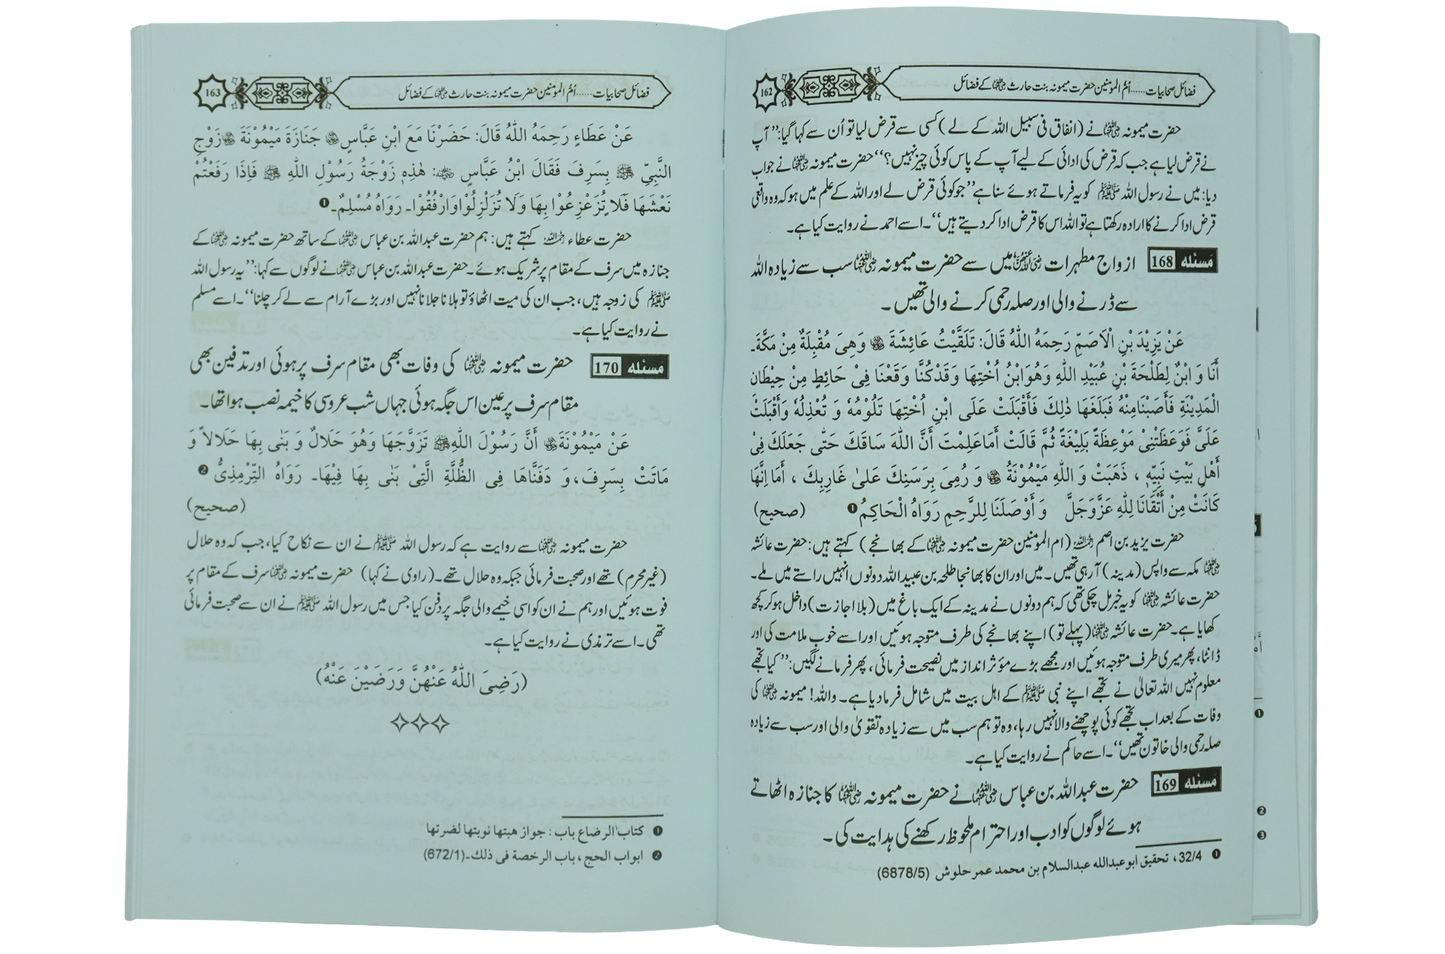 162
فضائل صحابیات ...... اُمّ المؤمنین حضرت میمونہ بنت حارث رضی اللہ عنہا کے فضائل
حضرت میمونہ رضی اللہ عنہا نے (انفاق فی سبیل اللہ کے لے) کسی سے قرض لیا تو اُن سے کہا گیا: ’’آپ
نے قرض لیا ہے جب کہ قرض کی ادائی کے لیے آپ کے پاس کوئی چیز نہیں؟‘‘ حضرت میمونہ رضی اللہ عنہا نے جواب
دیا: میں نے رسول اللہ ﷺ کو یہ فرماتے ہوئے سنا ہے ’’جو کوئی قرض لے اور اللہ کے علم میں ہو کہ وہ واقعی
قرض ادا کرنے کا ارادہ رکھتا ہے تو اللہ اس کا قرض ادا کر دیتے ہیں‘‘۔ اسے احمد نے روایت کیا ہے۔
مَسئله 168 ازواج مطہرات رضی اللہ عنہن میں سے حضرت میمونہ رضی اللہ عنہا سب سے زیادہ اللہ
سے ڈرنے والی اور صلہ رحمی کرنے والی تھیں ۔
عَنْ يَزِيْدَ بْنِ الْاَصَمِّ رَحِمَهُ اللّٰهُ قَالَ: تَلَقَّيْتُ عَائِشَةَ رضی اللہ عنہا وَهِىَ مُقْبِلَةٌ مِنْ مَكَّةَ۔
أَنَا وَ ابْنٌ لِطَلْحَةَ بْنِ عُبَيْدِ اللّٰهِ وَهُوَ ابْنُ اُخْتِهَا وَقَدْ كُنَّا وَقَعْنَا فِىْ حَائِطٍ مِنْ حِيْطَانِ
الْمَدِيْنَةِ فَأَصَبْنَا مِنْهُ فَبَلَغَهَا ذٰلِكَ فَأَقْبَلَتْ عَلَى ابْنِ اُخْتِهَا تَلُوْمُهُ وَ تُعْذِلُهُ وَأَقْبَلَتْ
عَلَىَّ فَوَعَظَتْنِىْ مَوْعِظَةً بَلِيْغَةً ثُمَّ قَالَتْ أَمَا عَلِمْتَ أَنَّ اللّٰهَ سَاقَكَ حَتّٰى جَعَلَكَ فِىْ
أَهْلِ بَيْتِ نَبِيِّهِ ، ذَهَبَتْ وَ اللّٰهِ مَيْمُوْنَةُ رضی اللہ عنہا وَ رُمِىَ بِرَسَنِكَ عَلىٰ غَارِبِكَ ، أَمَا اِنَّهَا
كَانَتْ مِنْ أَتْقَانَا لِلّٰهِ عَزَّوَجَلَّ وَ أَوْصَلَنَا لِلرَّحِمِ رَوَاهُ الْحَاكِمُ ❶ (صحيح)
حضرت یزید بن اصم رحمہ اللہ (ام المؤمنین حضرت میمونہ رضی اللہ عنہا کے بھانجے) کہتے ہیں: حضرت عائشہ
رضی اللہ عنہا مکہ سے واپس (مدینہ) آ رہی تھیں۔ میں اور ان کا بھانجا طلحہ بن عبید اللہ دونوں انہیں راستے میں ملے۔
حضرت عائشہ رضی اللہ عنہا کو یہ خبر مل چکی تھی کہ ہم دونوں نے مدینہ کے ایک باغ میں (بلا اجازت) داخل ہو کر کچھ
کھایا ہے۔ حضرت عائشہ رضی اللہ عنہا (پہلے تو) اپنے بھانجے کی طرف متوجہ ہوئیں اور اسے خوب ملامت کی اور
ڈانٹا، پھر میری طرف متوجہ ہوئیں اور مجھے بڑے مؤثر انداز میں نصیحت فرمائی ، پھر فرمانے لگیں: ’’کیا تجھے
معلوم نہیں اللہ تعالیٰ نے تجھے اپنے نبی ﷺ کے اہل بیت میں شامل فرما دیا ہے۔ واللہ! میمونہ رضی اللہ عنہا کی
وفات کے بعد اب تجھے کوئی پوچھنے والا نہیں رہا، وہ تو ہم سب میں سے زیادہ تقویٰ والی اور سب سے زیادہ
صلہ رحمی والی خاتون تھیں‘‘۔ اسے حاکم نے روایت کیا ہے۔
مَسئله 169 حضرت عبداللہ بن عباس رضی اللہ عنہما نے حضرت میمونہ رضی اللہ عنہا کا جنازہ اٹھاتے
ہوئے لوگوں کو ادب اور احترام ملحوظ رکھنے کی ہدایت کی ۔
❶ 32/4 ، تحقيق ابو عبدالله عبدالسلام بن محمد عمر حلوش (6878/5)
163
فضائل صحابیات ...... اُمّ المؤمنین حضرت میمونہ بنت حارث رضی اللہ عنہا کے فضائل
عَنْ عَطَاءٍ رَحِمَهُ اللّٰهُ قَالَ: حَضَرْنَا مَعَ ابْنِ عَبَّاسٍ رضی اللہ عنہما جَنَازَةَ مَيْمُوْنَةَ رضی اللہ عنہا زَوْجِ
النَّبِيِّ ﷺ بِسَرِفَ فَقَالَ ابْنُ عَبَّاسٍ رضی اللہ عنہما : هٰذِهِ زَوْجَةُ رَسُوْلِ اللّٰهِ ﷺ فَاِذَا رَفَعْتُمْ
نَعْشَهَا فَلَا تُزَعْزِعُوْا بِهَا وَلَا تُزَلْزِلُوْا وَارْفُقُوْا۔ رَوَاهُ مُسْلِمٌ۔❶
حضرت عطاء رحمہ اللہ کہتے ہیں: ہم حضرت عبداللہ بن عباس رضی اللہ عنہما کے ساتھ حضرت میمونہ رضی اللہ عنہا کے
جنازہ میں سرف کے مقام پر شریک ہوئے۔ حضرت عبداللہ بن عباس رضی اللہ عنہما نے لوگوں سے کہا: ’’یہ رسول اللہ
ﷺ کی زوجہ ہیں، جب ان کی میت اٹھاؤ تو ہلانا جلانا نہیں اور بڑے آرام سے لے کر چلنا‘‘۔ اسے مسلم
نے روایت کیا ہے۔
مَسئله 170 حضرت میمونہ رضی اللہ عنہا کی وفات بھی مقام سرف پر ہوئی اور تدفین بھی
مقام سرف پر عین اس جگہ ہوئی جہاں شب عروسی کا خیمہ نصب ہوا تھا۔
عَنْ مَيْمُوْنَةَ رضی اللہ عنہا أَنَّ رَسُوْلَ اللّٰهِ ﷺ تَزَوَّجَهَا وَهُوَ حَلَالٌ وَ بَنٰى بِهَا حَلَالاً وَ
مَاتَتْ بِسَرِفَ، وَ دَفَنَّاهَا فِى الظُّلَّةِ الَّتِىْ بَنٰى بِهَا فِيْهَا۔ رَوَاهُ التِّرْمِذِىُّ ❷
(صحيح)
حضرت میمونہ رضی اللہ عنہا سے روایت ہے کہ رسول اللہ ﷺ نے ان سے نکاح کیا، جب کہ وہ حلال
(غیر محرم) تھے اور صحبت فرمائی جبکہ وہ حلال تھے۔ (راوی نے کہا) حضرت میمونہ رضی اللہ عنہا سرف کے مقام پر
فوت ہوئیں اور ہم نے ان کو اسی خیمے والی جگہ پر دفن کیا جس میں رسول اللہ ﷺ نے ان سے صحبت فرمائی
تھی۔ اسے ترمذی نے روایت کیا ہے۔
(رَضِىَ اللّٰهُ عَنْهُنَّ وَرَضَيْنَ عَنْهُ)
❶ كتاب الرضاع باب : جواز هبتها نوبتها لضرتها
❷ ابواب الحج ، باب الرخصة فى ذلك۔ (672/1)